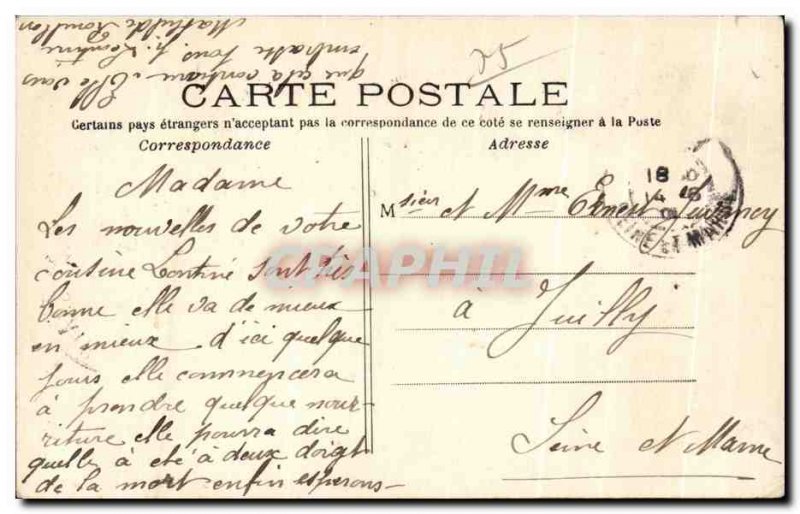 CARTE POSTALE
Certains pays étrangers n'acceptant pas la correspondance de ce coté se renseigner à la Poste
Correspondance
Adresse
Madame
Les nouvelles de votre
cousine Lontine sont très
bonne elle va de mieux
en mieux d'ici quelque
jours elle commencera
à prendre quelque nour-
riture elle pourra dire
quelle à été à deux doigt
de la mort enfin esperons-
que cela continu. Elle vous
embrasse tous.
Mathilde
Msieur et Mme Ernest
à Juilly
Seine et Marne
25
18
CPAPHIL